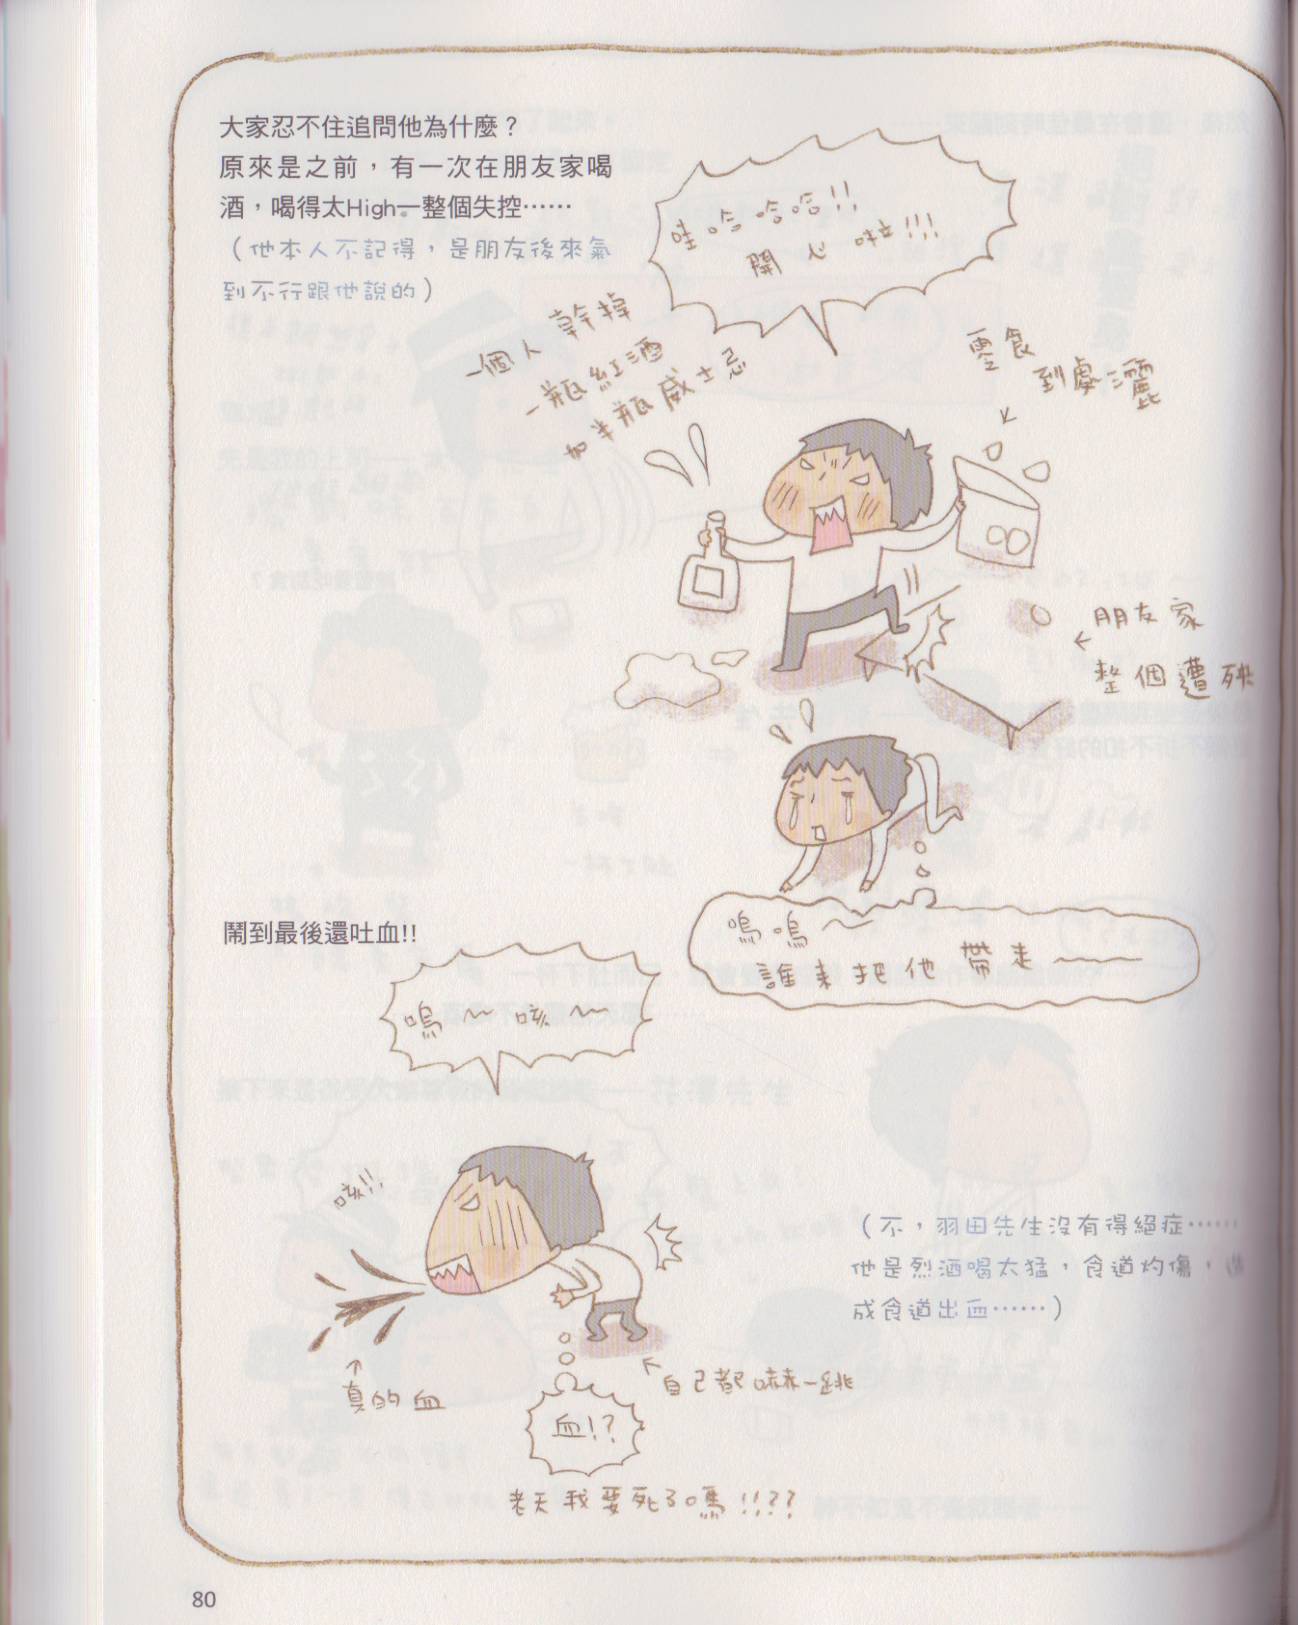 大家忍不住追問他為什麼？
原來是之前，有一次在朋友家喝
酒，喝得太High一整個失控……
（他本人不記得，是朋友後來氣
到不行跟他說的）
哇哈哈哈!!
開心啦!!!
一個人幹掉
一瓶紅酒
加半瓶威士忌
零食
到處灑
朋友家
整個遭殃
嗚嗚～
誰來把他帶走～
鬧到最後還吐血!!
嗚～咳～
咳!!
真的血
自己都嚇一跳
血!?
老天我要死了嗎!!??
（不，羽田先生沒有得絕症……
他是烈酒喝太猛，食道灼傷，
成食道出血……）
80